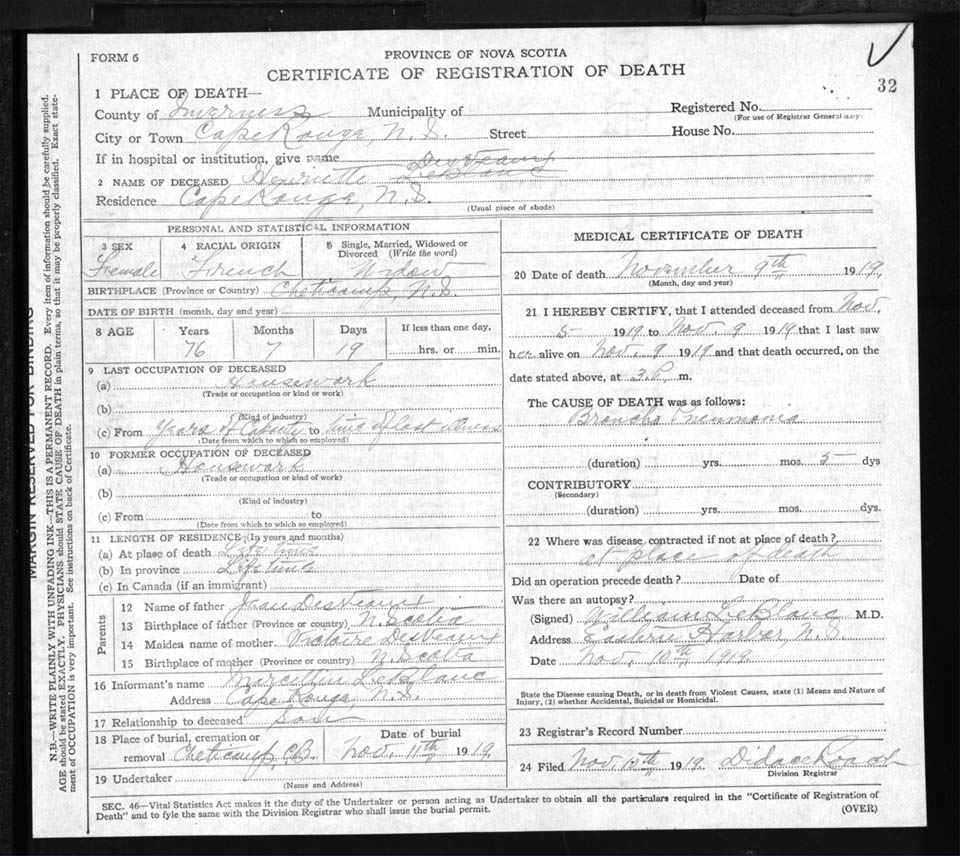 FORM 6
PROVINCE OF NOVA SCOTIA
CERTIFICATE OF REGISTRATION OF DEATH
32
1 PLACE OF DEATH—
County of Inverness Municipality of
Registered No.
(For use of Registrar General only.)
City or Town Cape Rouge, N.S. Street House No.
If in hospital or institution, give name
DesVeaux
2 NAME OF DECEASED Henriette LeBlanc
Residence Cape Rouge, N.S.
(Usual place of abode)
PERSONAL AND STATISTICAL INFORMATION
3 SEX 4 RACIAL ORIGIN 5 Single, Married, Widowed or Divorced (Write the word)
Female French Widow
BIRTHPLACE (Province or Country) Cheticamp, N.S.
DATE OF BIRTH (month, day and year)
8 AGE Years Months Days If less than one day,
76 7 19 hrs. or min.
9 LAST OCCUPATION OF DECEASED
(a) Housework
(Trade or occupation or kind of work)
(b)
(Kind of industry)
(c) From Years of to time of last illness
(Date from which to which so employed)
10 FORMER OCCUPATION OF DECEASED
(a) Housework
(Trade or occupation or kind of work)
(b)
(Kind of industry)
(c) From to
(Date from which to which so employed)
11 LENGTH OF RESIDENCE (In years and months)
(a) At plase of death Life time
(b) In province Life time
(c) In Canada (if an immigrant)
Parents
12 Name of father Jean DesVeaux
13 Birthplace of father (Province or country) N. Scotia
14 Maiden name of mother Victoire DesVeaux
15 Birthplace of mother (Province or country) N. Scotia
16 Informant's name Marcellin LeBlanc
Address Cape Rouge, N.S.
17 Relationship to deceased son
18 Place of burial, cremation or removal Cheticamp, C.B.
Date of burial
Nov. 11th 1919
19 Undertaker
(Name and Address)
MEDICAL CERTIFICATE OF DEATH
20 Date of death November 9th 1919
(Month, day and year)
21 I HEREBY CERTIFY, that I attended deceased from Nov.
5 1919 to Nov. 9 1919 that I last saw
her alive on Nov. 9 1919 and that death occurred, on the
date stated above, at 3.P. m.
The CAUSE OF DEATH was as follows:
Broncho Pneumonia
(duration) yrs. mos. 5 dys
CONTRIBUTORY
(Secondary)
(duration) yrs. mos. dys.
22 Where was disease contracted if not at place of death?
at place of death
Did an operation precede death? Date of
Was there an autopsy?
(Signed) William LeBlanc M.D.
Address Eastern Harbor, N.S.
Date Nov. 10th 1919
State the Disease causing Death, or in death from Violent Causes, state (1) Means and Nature of
Injury, (2) whether Accidental, Suicidal or Homicidal.
23 Registrar's Record Number
24 Filed Nov. 10th 1919 Didace
Division Registrar
SEC. 46—Vital Statistics Act makes it the duty of the Undertaker or person acting as Undertaker to obtain all the particulars required in the "Certificate of Registration of
Death" and to fyle the same with the Division Registrar who shall issue the burial permit.
(OVER)
MARGIN RESERVED FOR BINDING
N.B.—WRITE PLAINLY WITH UNFADING INK—THIS IS A PERMANENT RECORD. Every item of information should be carefully supplied.
AGE should be stated EXACTLY. PHYSICIANS should STATE CAUSE OF DEATH in plain terms, so that it may be properly classified. Exact state-
ment of OCCUPATION is very important. See instructions on back of Certificate.